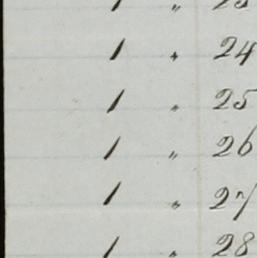 1 " 23
1 " 24
1 " 25
1 " 26
1 " 27
1 " 28